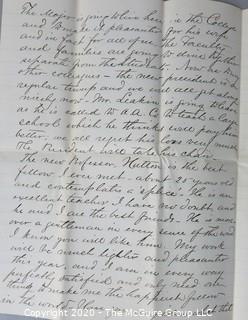 The Major is going to live here in the College
and make it pleasanter for his wife
and in fact for all of us. The Faculty
and families are going to dine together
separate from the Students. Now the
other colleagues - the new president is a
regular trump and we all get along
nicely now - Mr. Leakin is going to leave
as he is called to A.A. Co. to teach a large
school which he thinks will pay him
better. we all regret his very much
The President will take his chair.
The new Professor Hutton is the best
fellow I ever met - about 25 years old
and contemplates a splice. He is an
excellent teacher, I have no doubt, and
he and I are the best friends. He is more
over a gentleman in every sense of the word
I know you will like him. My work
will be much lighter and pleasanter
this year, and I am in every way
perfectly satisfied and only need one
thing to make me the happiest fellow
in the world.
Copyright 2020 - Photographic